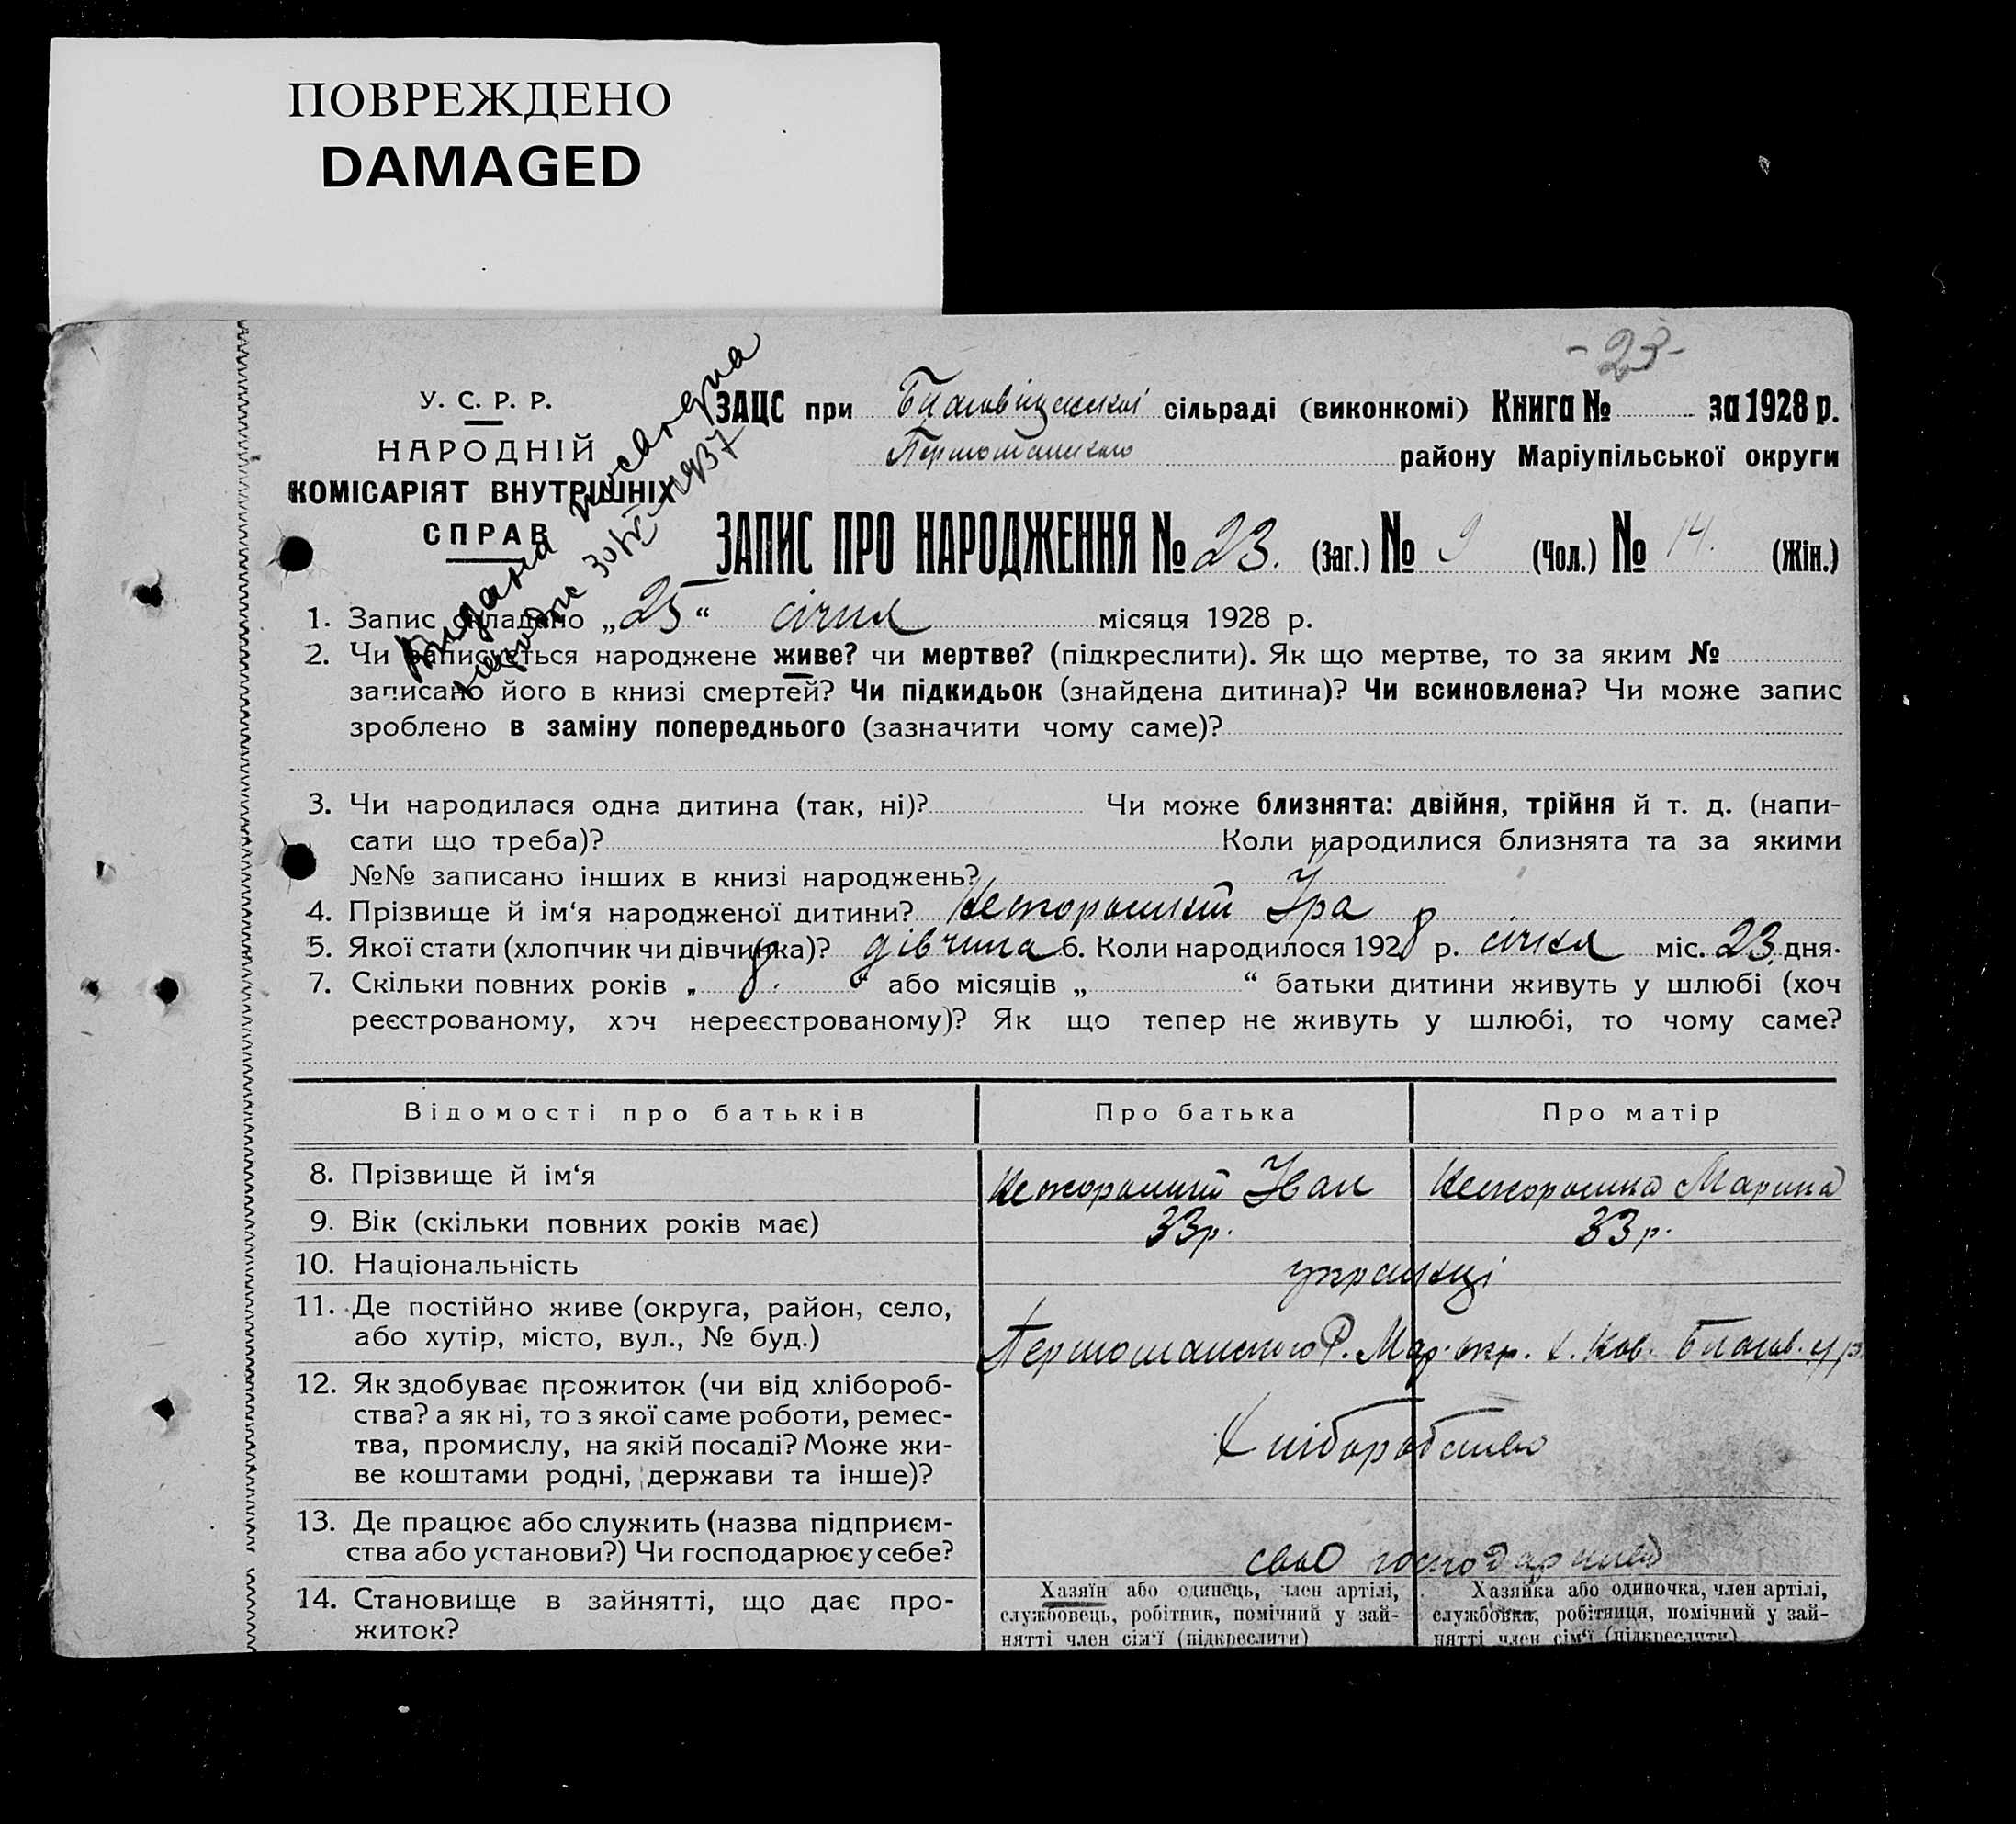 ПОВРЕЖДЕНО
DAMAGED
-23-
У. С. Р. Р.
НАРОДНІЙ
КОМІСАРІЯТ ВНУТРІШНІХ
СПРАВ
Видана
1937
ЗАЦС при Благовіщенській сільраді (виконкомі) Книга № за 1928 р.
району Маріупільської округи
ЗАПИС ПРО НАРОДЖЕННЯ № 23. (Заг.) № 9 (Чол.) № 14. (Жін.)
1. Запис складано „25“ січня місяця 1928 р.
2. Чи записується народжене живе? чи мертве? (підкреслити). Як що мертве, то за яким №
записано його в книзі смертей? Чи підкидьок (знайдена дитина)? Чи всиновлена? Чи може запис
зроблено в заміну попереднього (зазначити чому саме)?
3. Чи народилася одна дитина (так, ні)? Чи може близнята: двійня, трійня й т. д. (напи-
сати що треба)? Коли народилися близнята та за якими
№№ записано інших в книзі народжень?
4. Прізвище й ім‘я народженої дитини? Іра
5. Якої стати (хлопчик чи дівчинка)? дівчина 6. Коли народилося 1928 р. січня міс. 23 дня.
7. Скільки повних років „ 8. “ або місяців „ “ батьки дитини живуть у шлюбі (хоч
реєстрованому, хоч нереєстрованому)? Як що тепер не живуть у шлюбі, то чому саме?
Відомості про батьків Про батька Про матір
8. Прізвище й ім‘я Іван Марина
9. Вік (скільки повних років має) 33 р. 33 р.
10. Національність українці
11. Де постійно живе (округа, район, село,
або хутір, місто, вул., № буд.) Р. Мар. окр.
12. Як здобуває прожиток (чи від хлібороб-
ства? а як ні, то з якої саме роботи, ремес-
тва, промислу, на якій посаді? Може жи-
ве коштами родні, держави та інше)? Хліборобство
13. Де працює або служить (назва підприєм-
ства або установи?) Чи господарює у себе? своє
14. Становище в зайнятті, що дає про-
житок?
Хазяїн або одинець, член артілі,
службовець, робітник, помічний у зай-
нятті член сім‘ї (підкреслити)
Хазяйка або одиночка, член артілі,
службовка, робітниця, помічний у зай-
нятті член сім‘ї (підкреслити)